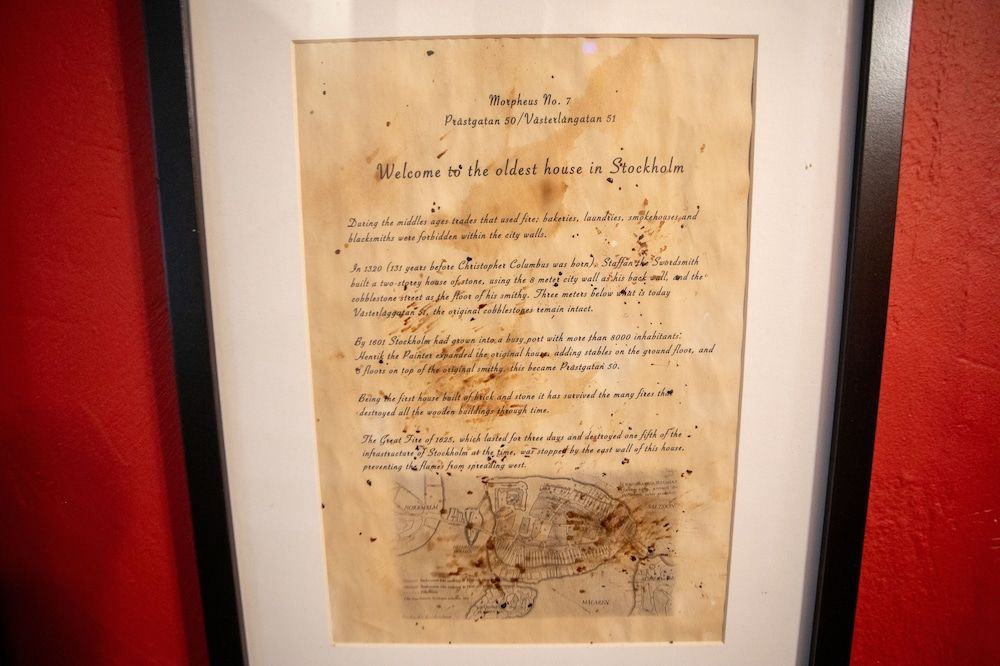 Morpheus No. 7
Prästgatan 50/Västerlångatan 51
Welcome to the oldest house in Stockholm
During the middles ages trades that used fire; bakeries, laundries, smokehouses and
blacksmiths were forbidden within the city walls.
In 1320 (131 years before Christopher Columbus was born), Staffan the Swordsmith
built a two-storey house of stone, using the 8 meter city wall as his back wall, and the
cobblestone street as the floor of his smithy. Three meters below what is today
Västerlåggatan 51, the original cobblestones remain intact.
By 1601 Stockholm had grown into a busy port with more than 8000 inhabitants.
Henrik the Painter expanded the original house, adding stables on the ground floor, and
floors on top of the original smithy, this became Prästgatan 50.
Being the first house built of brick and stone it has survived the many fires that
destroyed all the wooden buildings through time.
The Great Fire of 1625, which lasted for three days and destroyed one fifth of the
infrastructure of Stockholm at the time, was stopped by the east wall of this house,
preventing the flames from spreading west.
NORRMALM
SALTSJÖN
MÄLAREN